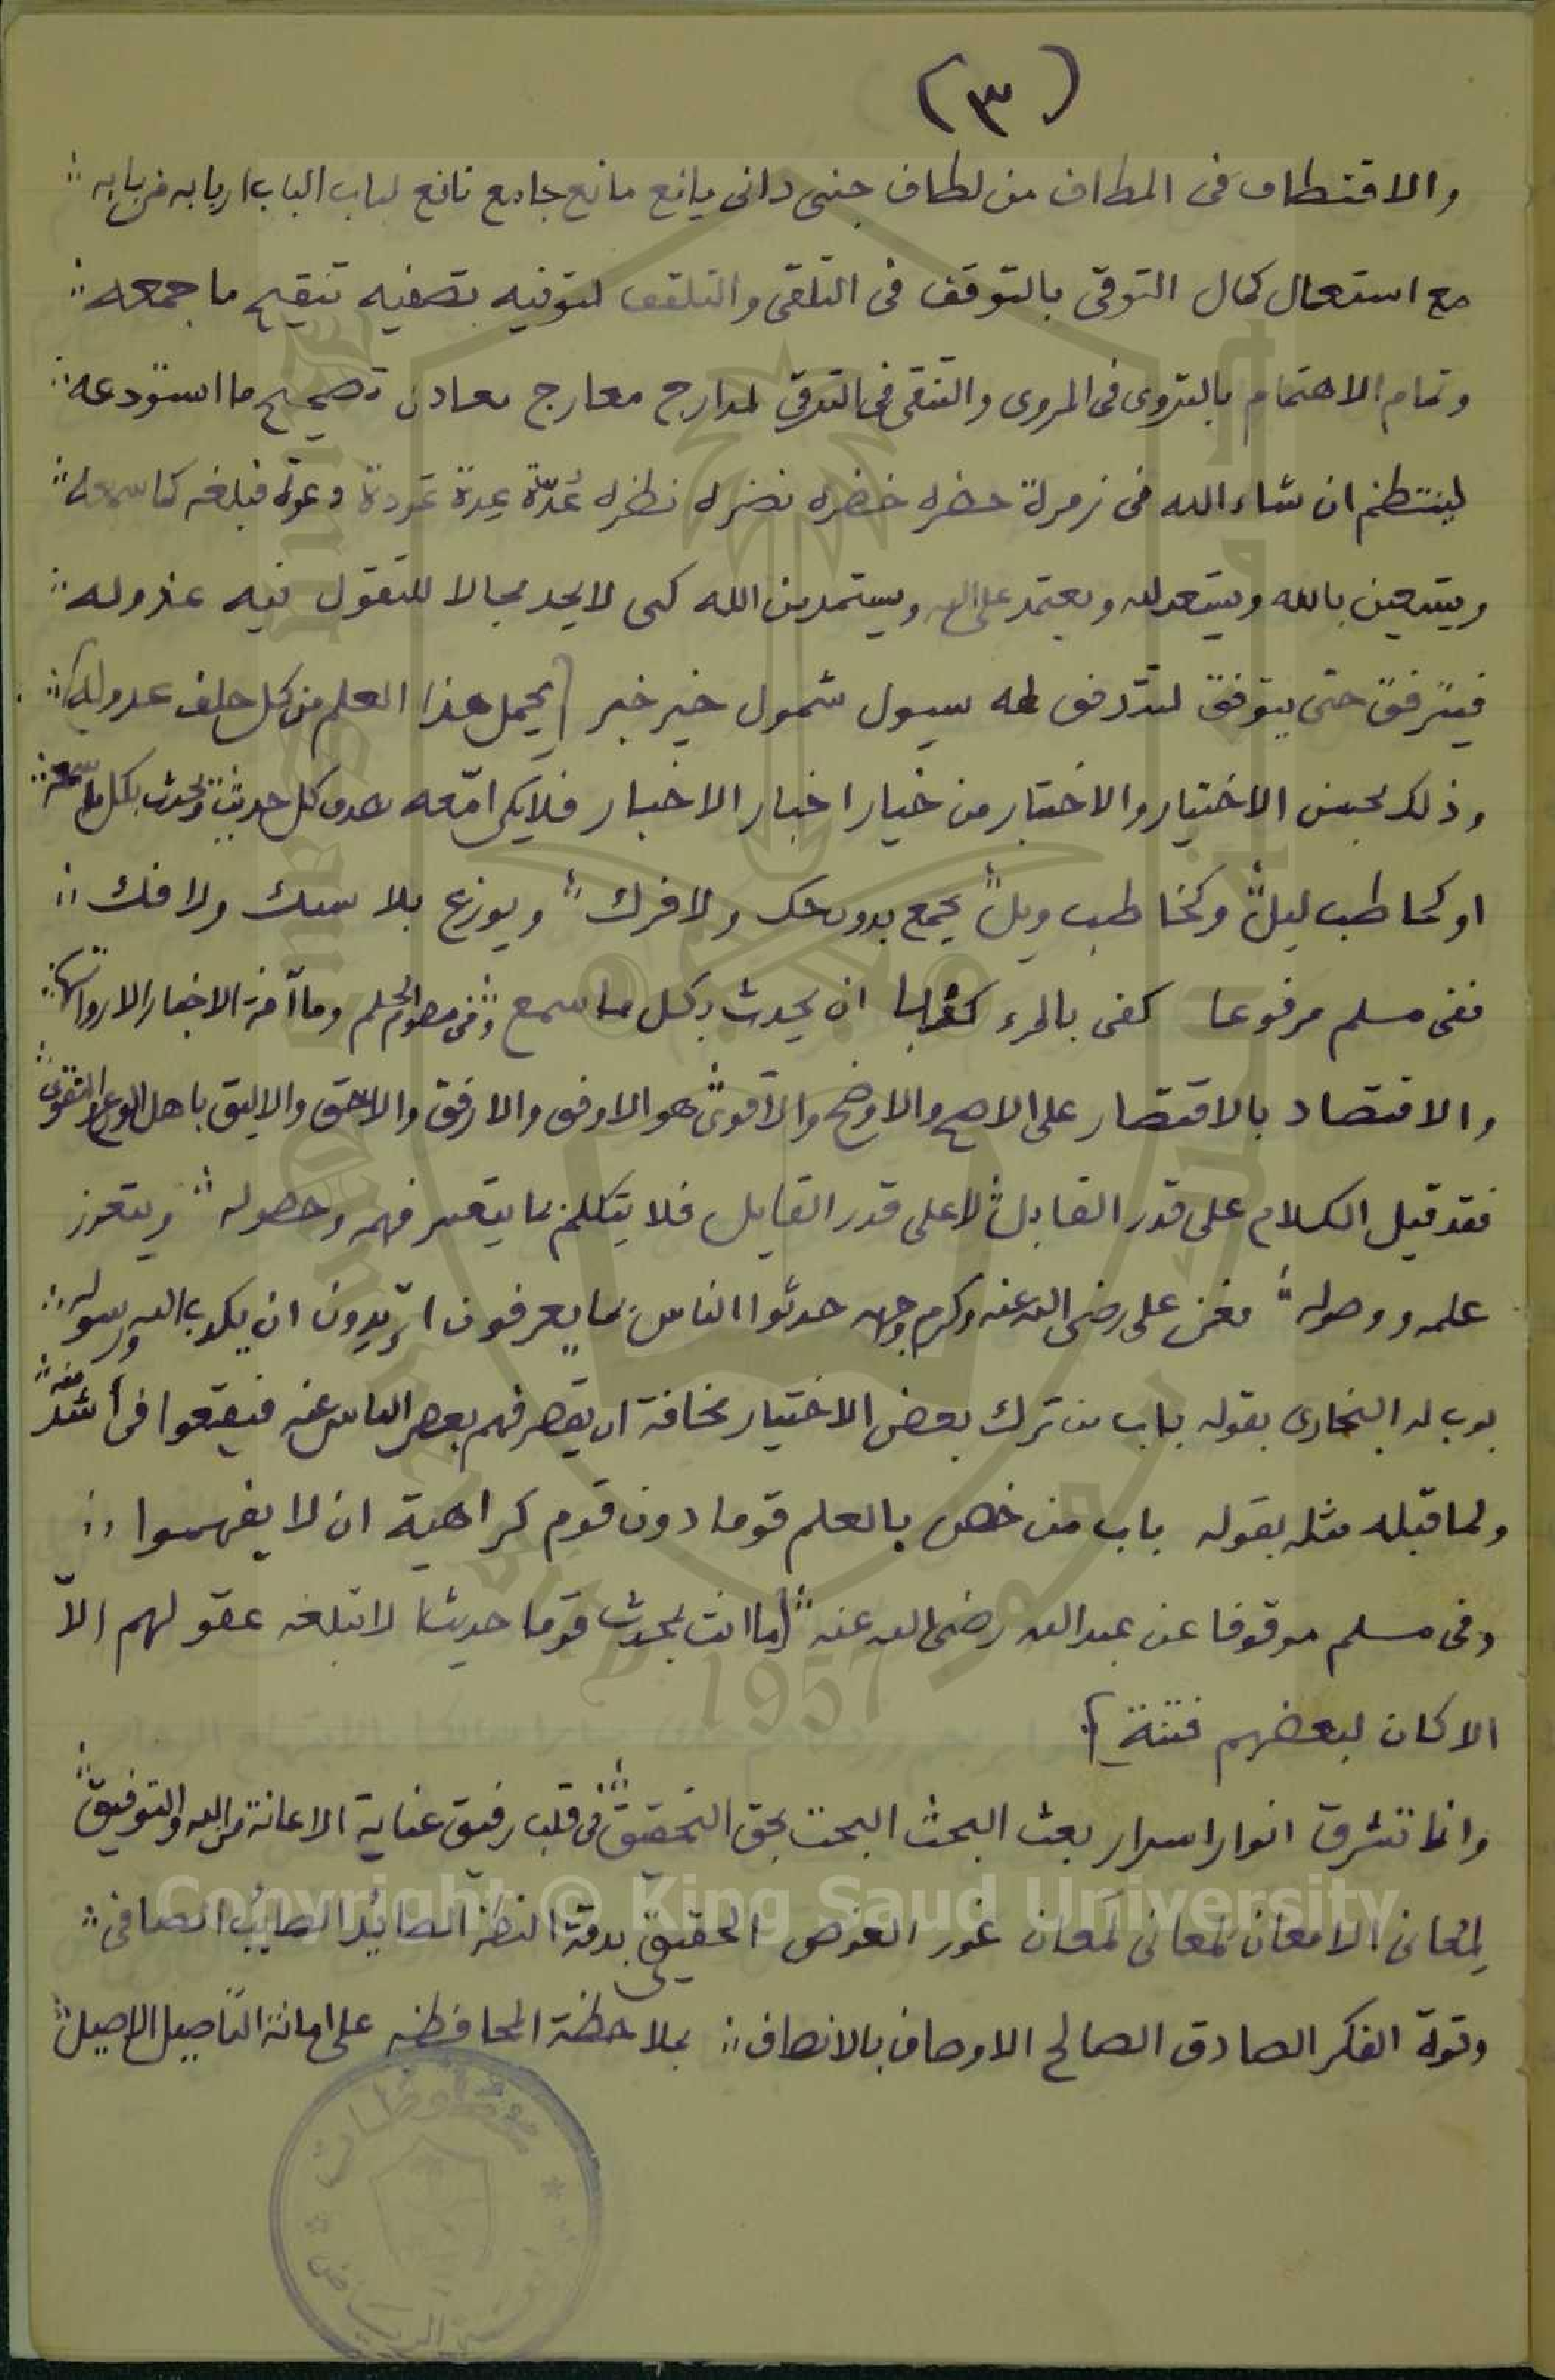 (٣)
والاقتطاف فى المطاف من لطاف جنى دانى يانع مانع جامع نافع لباب الباب اربابه
مع استعمال كمال التوقى بالتوقف فى التلقى والتلقف لتوفيه تصفيه تنقيح ما جمعه
وتمام الاهتمام بالتروى فى المروى والتنقى فى الترقى لمدارج معارج معادن تصحيح ما استودعه
لينتظم ان شاء الله فى زمرة حضره خضره نضره نظره عُدّة عِدة دعوة فبلغه كما سمعه
ويستعين بالله ويستعد لله ويعتمد على الله ويستمد من الله كى لا يجد مجالا للتقول فيه عذوله
فيترفق حتى يتوفق لتدفق له سيول شمول خير خبر يحمل هذا العلم من كل خلف عدوله
وذلك بحسن الاختيار والاختبار من خيار اخبار الاخبار فلا يكن امّعه كل حديث ويحدث بكل ما سمعه
او كحاطب ليل وكخاطب ويل يجمع بدون حك ولا فرك ويوزع بلا سبك ولا فك
ففى مسلم مرفوعا كفى بالمرء كذبا ان يحدث بكل ما سمع وما آفة الاخبار الا رواتها
والاقتصاد بالاقتصار على الاصح والاوضح والاقوى هو الاوفق والارفق والاحق والاليق باهل الورع والتقوى
فقد قيل الكلام على قدر القابل لا على قدر القايل فلا يتكلم بما يتعسر فهمه وحصوله ويتعزز
علمه ووصوله فعن على رضى الله عنه وكرم وجهه حدثوا الناس بما يعرفون اتريدون ان يكذب الله ورسوله
بوب له البخارى بقوله باب من ترك بعض الاختيار مخافة ان يقصر فهم بعض الناس عنه فيقعوا فى أشد منه
ولما قبله مثله بقوله باب من خص بالعلم قوما دون قوم كراهية ان لا يفهموا
وفى مسلم موقوفا عن عبد الله رضى الله عنه ما انت بمحدث قوما حديثا لا تبلغه عقولهم الاّ
الا كان لبعضهم فتنة
وانما تشرق انوار اسرار بعث البحث البحت بحق التحقيق فى قلب رفيق عناية الاعانة من الله والتوفيق
الامعان لمعانى لمعان غور الغوص الحقيقى بدقة النظر الصائد الصايب الصافى
وقوة الفكر الصادق الصالح الاوصاف بالانصاف بملاحظة المحافظه على امانة التأصيل الاصيل
Copyright © King Saud University
1957